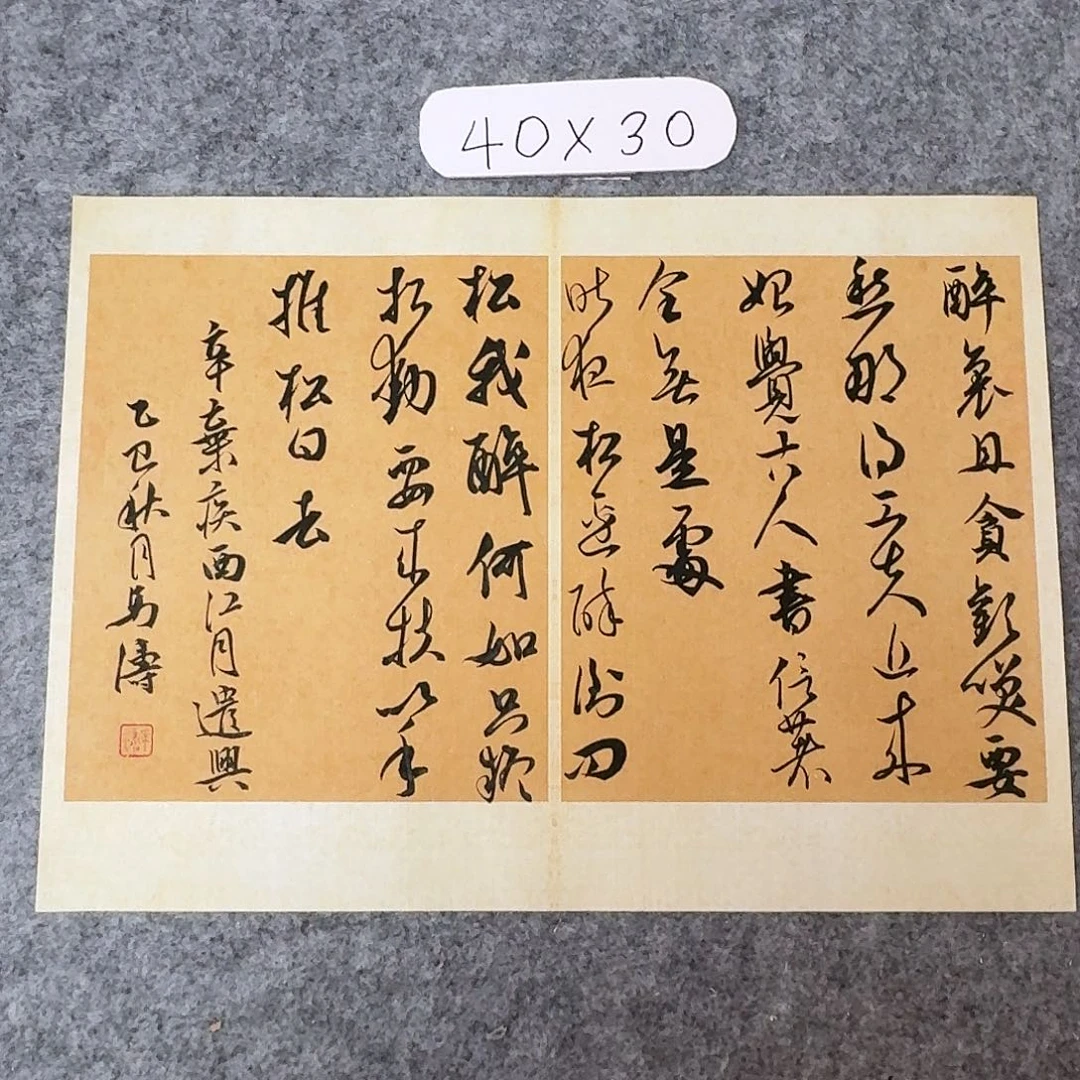 40X30
醉裏且貪歡笑要
愁那得工夫近來
始覺古人書信著
全無是處
昨夜松邊醉倒問
松我醉何如只疑
松動要來扶以手
推松曰去
辛棄疾西江月遣興
乙巳秋月馬濤